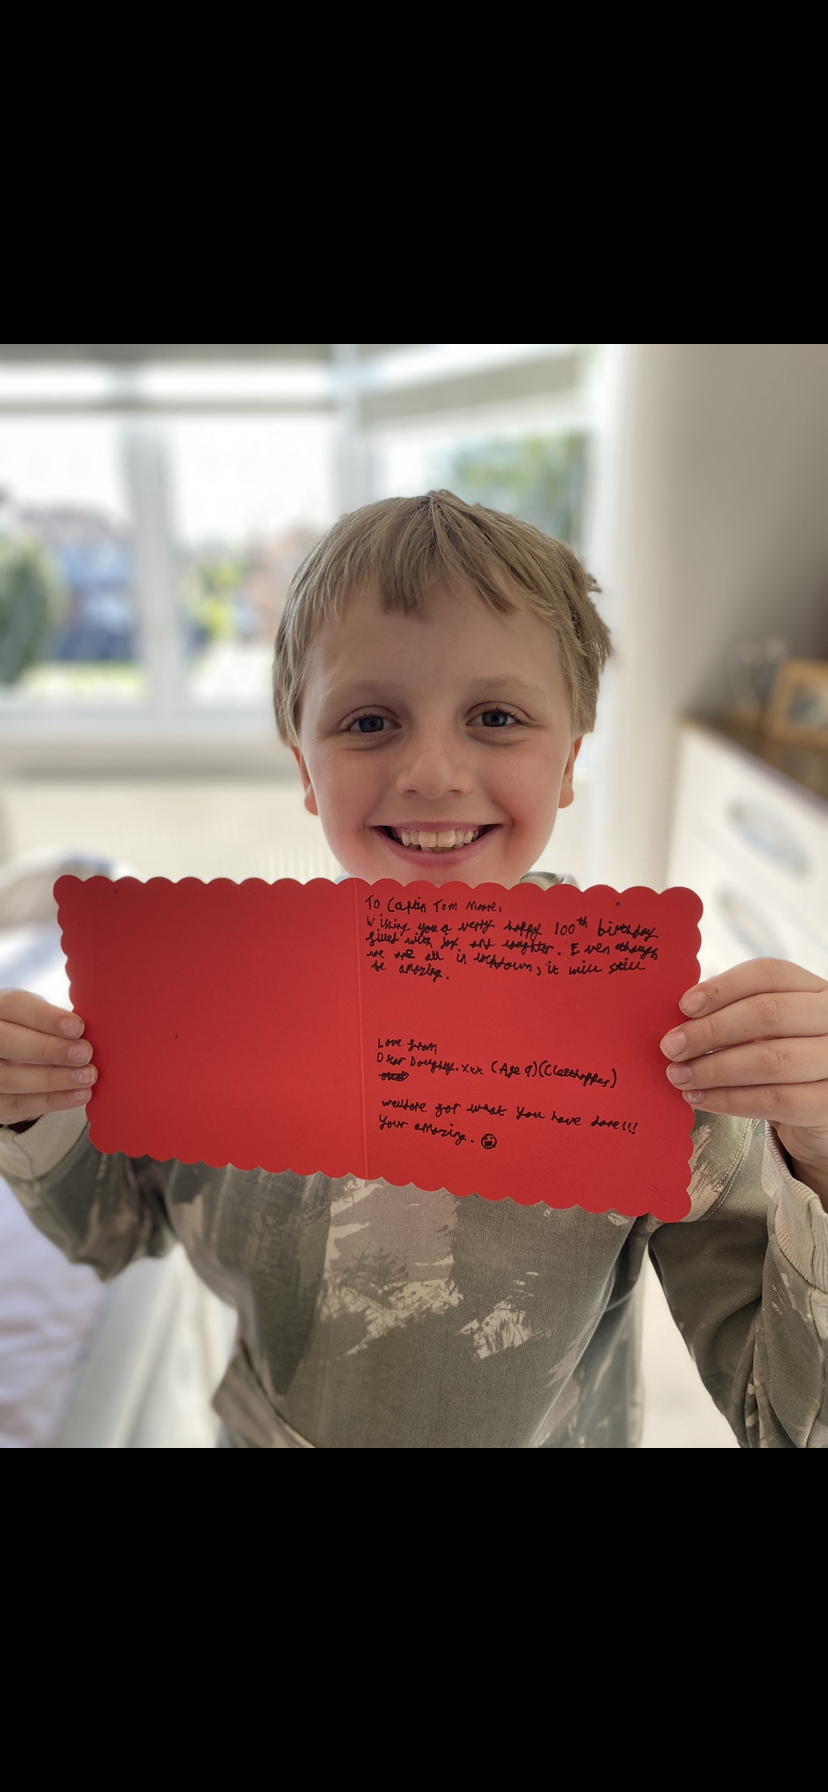 To Captin Tom Moore,
Wishing you a verry happy 100th birthday
filled with joy and laughter. Even though
we are all in lockdown, it will still
be amazing.
Love from
Oscar Doughty. xxx (Age 9) (Cleethorpes)
welldone for what you have done!!!
Your amazing.